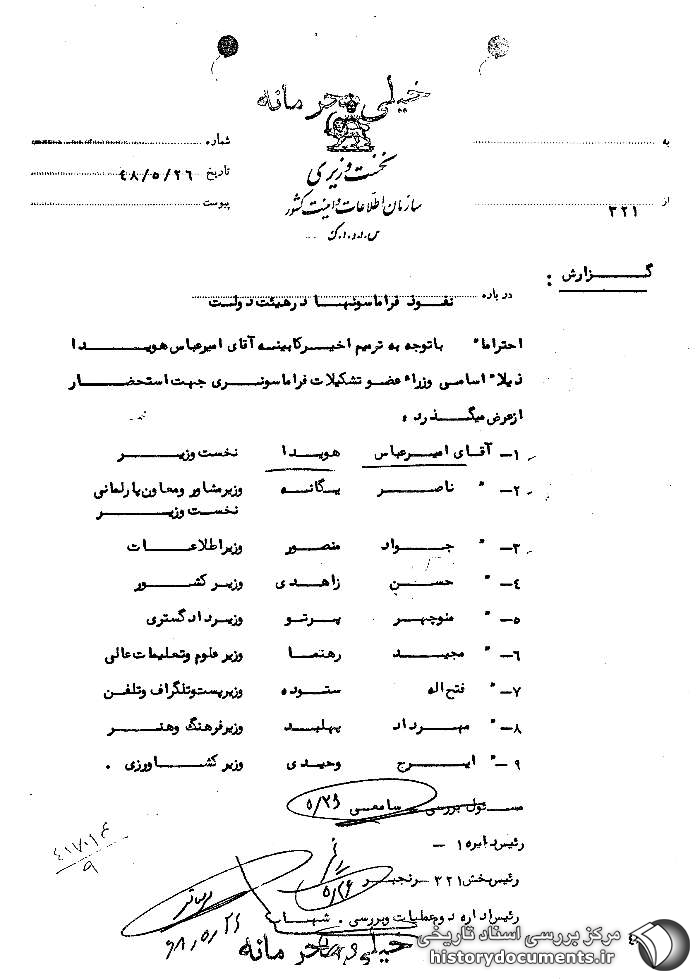 خیلی محرمانه
نخست وزیری
سازمان اطلاعات و امنیت کشور
س.ا.و.ا.ک
به
از ۳۲۱
شماره
تاریخ ۴۸/۵/۲۶
پیوست
گزارش :
درباره نفوذ فراماسونها در هیئت دولت
احتراما" باتوجه به ترمیم اخیرکابینه آقای امیرعباس هویدا
ذیلا" اسامی وزراء عضو تشکیلات فراماسونری جهت استحضار
ازعرض میگذرد :
۱- آقای امیرعباس هویدا نخست وزیر
۲- " ناصر یگانه وزیرمشاور ومعاون پارلمانی
نخست وزیر
۳- " جواد منصور وزیراطلاعات
۴- " حسن زاهدی وزیر کشور
۵- " منوچهر پرتو وزیردادگستری
۶- " مجید رهنما وزیر علوم وتعلیمات عالی
۷- " فتح اله ستوده وزیرپست وتلگراف وتلفن
۸- " مهرداد پهلبد وزیرفرهنگ وهنر
۹- " ایرج وحیدی وزیر کشاورزی .
مسئول بررسی - سامعی ۵/۲۶
رئیس دایره ۱ -
رئیس بخش ۳۲۱ - رنجبر ۵/۲۶
رئیس اداره دوعملیات وبررسی . شهاب
۴۸/۵/۲۶
۴۱۷۰۱۴
۹
خیلی محرمانه
مرکز بررسی اسناد تاریخی
historydocuments.ir